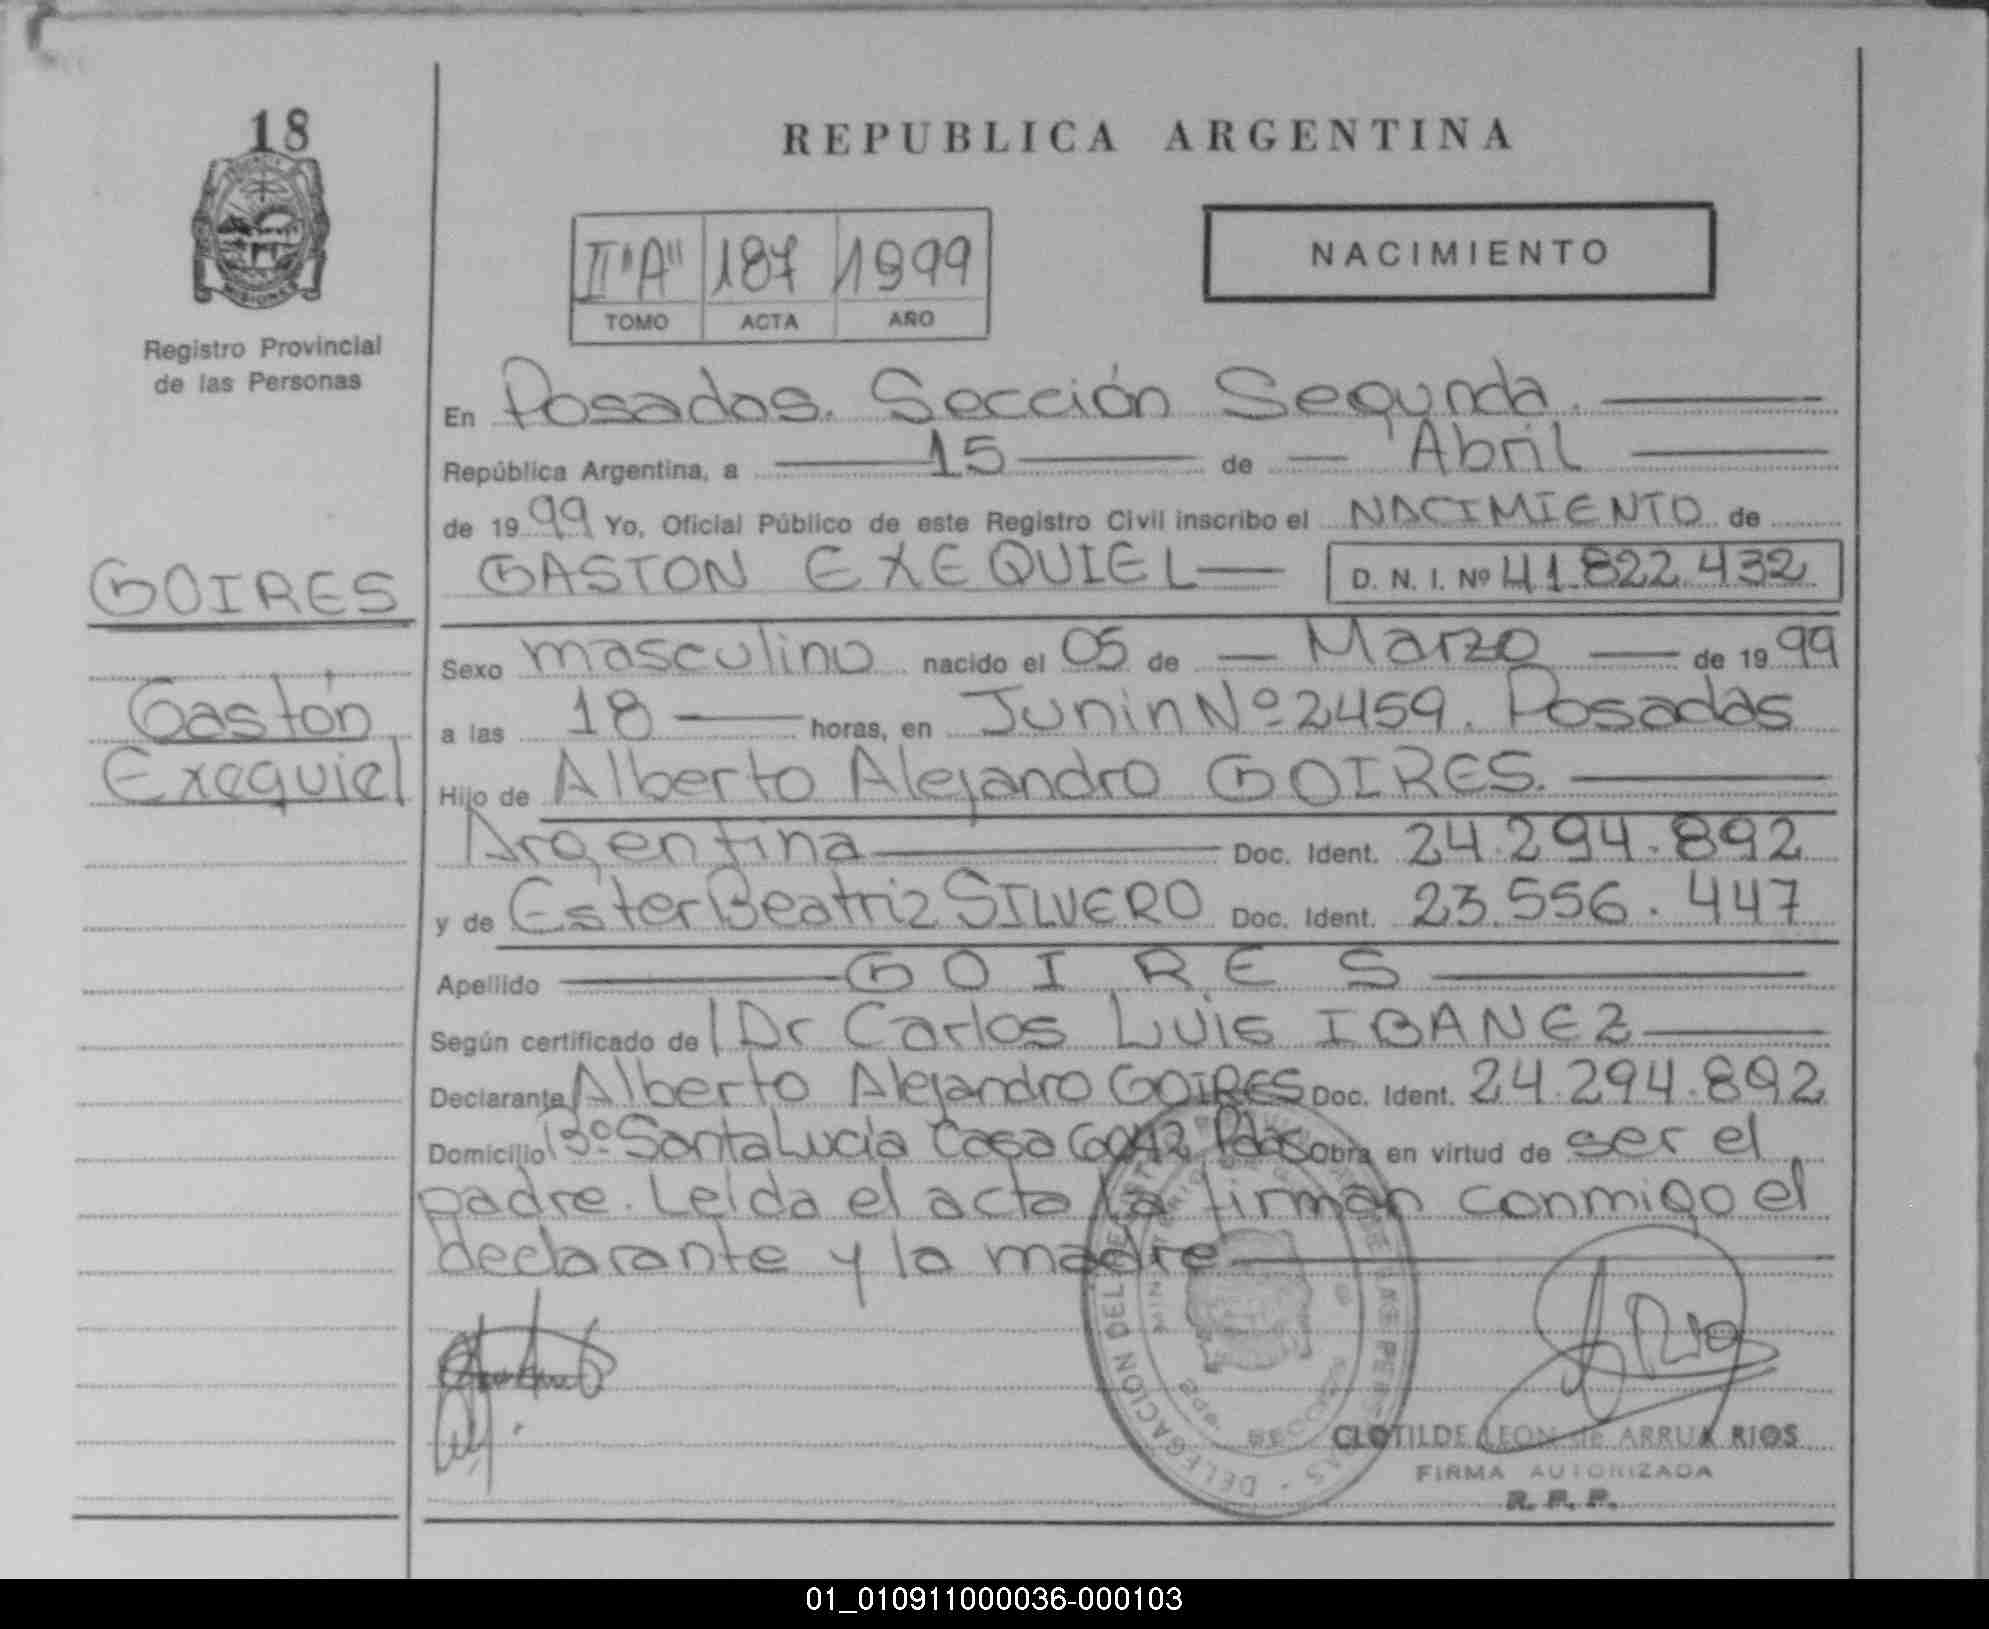 18
MISIONES
Registro Provincial
de las Personas
GOIRES
Gastón
Exequiel
REPUBLICA ARGENTINA
II "A" 187 1999
TOMO ACTA AÑO
NACIMIENTO
En Posadas. Sección Segunda.
República Argentina, a 15 de Abril
de 1999 Yo, Oficial Público de este Registro Civil inscribo el NACIMIENTO de
GASTON EXEQUIEL D. N. I. Nº 41.822.432
Sexo masculino nacido el 05 de Marzo de 1999
a las 18 horas, en Junin Nº 2459. Posadas
Hijo de Alberto Alejandro GOIRES.
Argentina Doc. Ident. 24.294.892
y de Ester Beatriz SILVERO Doc. Ident. 23.556.447
Apellido GOIRES
Según certificado de Dr Carlos Luis IBANEZ
Declarante Alberto Alejandro GOIRES Doc. Ident. 24.294.892
Domicilio Bº Santa Lucia Casa Pdas Obra en virtud de ser el
padre. Leída el acta la firman conmigo el
declarante y la madre
CLOTILDE LEON de ARRUA RIOS
FIRMA AUTORIZADA
R. P. P.
01_010911000036-000103